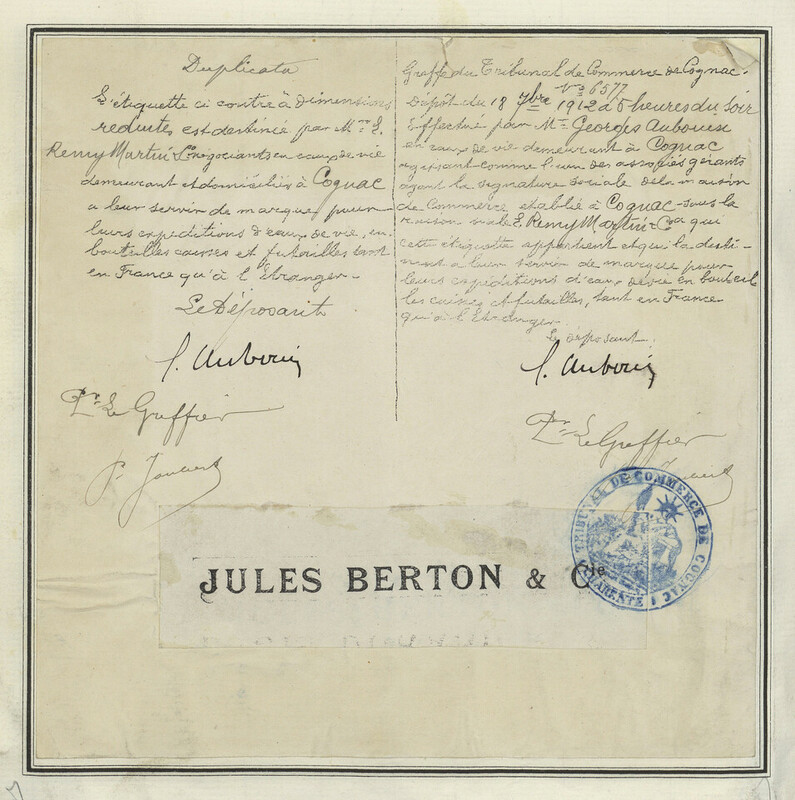 Duplicata
L'étiquette ci contre à dimensions
réduites est destinée par Mrs E.
Remy Martin & Co négociants en eaux de vie
demeurant et domiciliés à Cognac
a leur servir de marque pour
leurs expéditions d'eaux de vie, en
bouteilles caisses et futailles tant
en France qu'à l'Etranger.
Le Déposant
G. Auboin
Pr Le Greffier
P. Joubert
Greffe du Tribunal de Commerce de Cognac.
No 6577
Dépôt du 18 7bre 1912 à 6 heures du soir
Effectué par Mr Georges Auboin
en eaux de vie demeurant à Cognac
agissant comme l'un des associés gérants
ayant la signature sociale de la maison
de Commerce établie à Cognac sous la
raison sociale E. Remy Martin & Co à qui
cette étiquette appartient et qui la desti-
nent à leur servir de marque pour
leurs expéditions d'eaux de vie en bouteil
les caisses et futailles, tant en France
qu'à l'Etranger.
Le déposant.
G. Auboin
Pr Le Greffier
JULES BERTON & Cie
TRIBUNAL DE COMMERCE DE COGNAC
CHARENTE